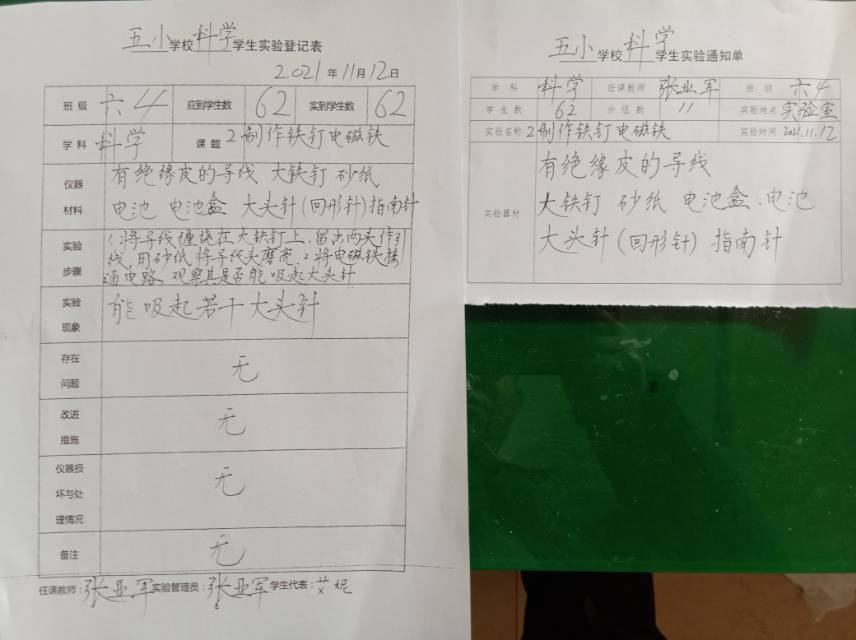 五小学校科学学生实验登记表
2021年11月12日
班级 六4 应到学生数 62 实到学生数 62
学科 科学 课题 2制作铁钉电磁铁
仪器材料 有绝缘皮的导线 大铁钉 砂纸
电池 电池盒 大头针(回形针)指南针
实验步骤 1将导线缠绕在大铁钉上,留出两头作引
线,用砂纸将导线头磨亮.2将电磁铁接
通电路.观察其是否能吸起大头针
实验现象 能吸起若干大头针
存在问题 无
改进措施 无
仪器损坏与处理情况 无
备注 无
任课教师:张亚军 实验管理员:张亚军 学生代表:艾妮
五小学校科学学生实验通知单
学科 科学 任课教师 张亚军 班级 六4
学生数 62 分组数 11 实验地点 实验室
实验名称 2制作铁钉电磁铁 实验时间 2021.11.12
实验器材 有绝缘皮的导线
大铁钉 砂纸 电池盒、电池
大头针(回形针) 指南针